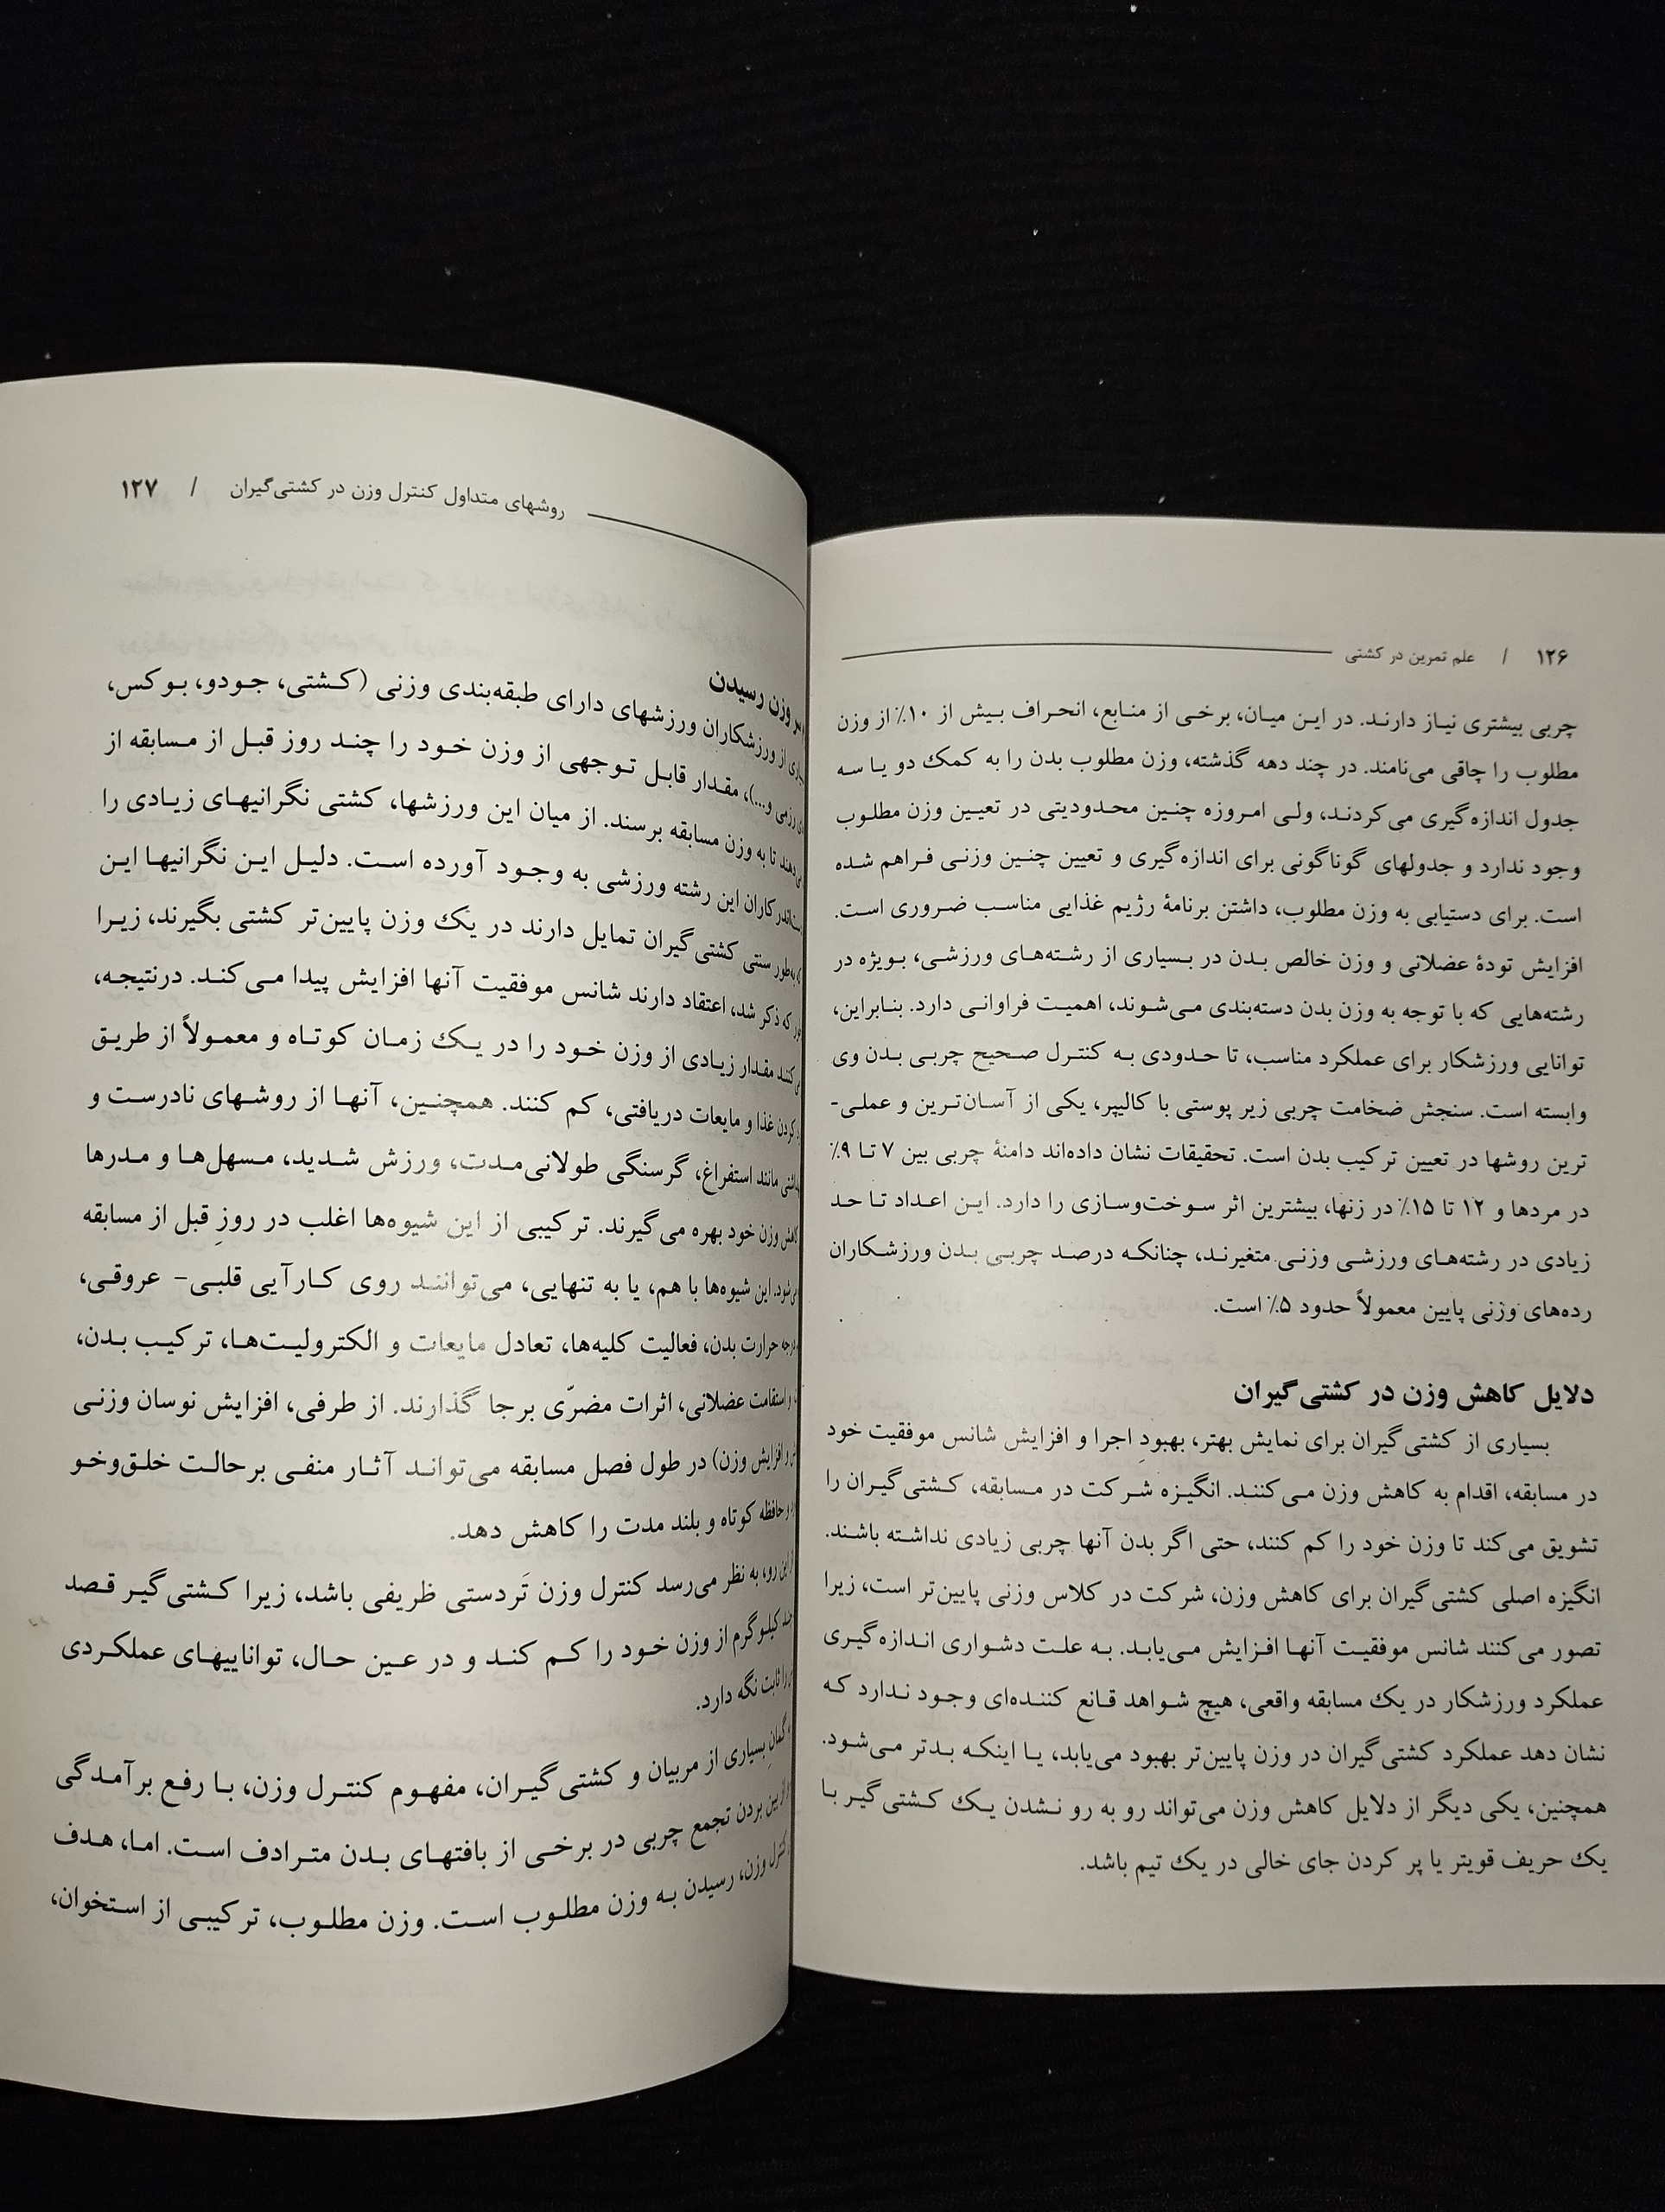 ۱۲۶ / علم تمرین در کشتی
چربی بیشتری نیاز دارند. در این میان، برخی از منابع، انحراف بیش از ۱۰٪ از وزن
مطلوب را چاقی می‌نامند. در چند دهه گذشته، وزن مطلوب بدن را به کمک دو یا سه
جدول اندازه‌گیری می‌کردند، ولی امروزه چنین محدودیتی در تعیین وزن مطلوب
وجود ندارد و جدولهای گوناگونی برای اندازه‌گیری و تعیین چنین وزنی فراهم شده
است. برای دستیابی به وزن مطلوب، داشتن برنامهٔ رژیم غذایی مناسب ضروری است.
افزایش تودهٔ عضلانی و وزن خالص بدن در بسیاری از رشته‌های ورزشی، بویژه در
رشته‌هایی که با توجه به وزن بدن دسته‌بندی می‌شوند، اهمیت فراوانی دارد. بنابراین،
توانایی ورزشکار برای عملکرد مناسب، تا حدودی به کنترل صحیح چربی بدن وی
وابسته است. سنجش ضخامت چربی زیر پوستی با کالیپر، یکی از آسان‌ترین و عملی-
ترین روشها در تعیین ترکیب بدن است. تحقیقات نشان داده‌اند دامنهٔ چربی بین ۷ تا ۹٪
در مردها و ۱۲ تا ۱۵٪ در زنها، بیشترین اثر سوخت‌وسازی را دارد. این اعداد تا حد
زیادی در رشته‌های ورزشی وزنی متغیرند، چنانکه درصد چربی بدن ورزشکاران
رده‌های وزنی پایین معمولاً حدود ۵٪ است.
دلایل کاهش وزن در کشتی‌گیران
بسیاری از کشتی‌گیران برای نمایش بهتر، بهبودِ اجرا و افزایش شانس موفقیت خود
در مسابقه، اقدام به کاهش وزن می‌کنند. انگیزه شرکت در مسابقه، کشتی‌گیران را
تشویق می‌کند تا وزن خود را کم کنند، حتی اگر بدن آنها چربی زیادی نداشته باشند.
انگیزه اصلی کشتی‌گیران برای کاهش وزن، شرکت در کلاس وزنی پایین‌تر است، زیرا
تصور می‌کنند شانس موفقیت آنها افزایش می‌یابد. به علت دشواری اندازه‌گیری
عملکرد ورزشکار در یک مسابقه واقعی، هیچ شواهد قانع کننده‌ای وجود ندارد که
نشان دهد عملکرد کشتی‌گیران در وزن پایین‌تر بهبود می‌یابد، یا اینکه بدتر می‌شود.
همچنین، یکی دیگر از دلایل کاهش وزن می‌تواند رو به رو نشدن یک کشتی‌گیر با
یک حریف قویتر یا پر کردن جای خالی در یک تیم باشد.
روشهای متداول کنترل وزن در کشتی‌گیران / ۱۲۷
وزن رسیدن
از ورزشکاران ورزشهای دارای طبقه‌بندی وزنی (کشتی، جودو، بوکس،
رزمی و...)، مقدار قابل توجهی از وزن خود را چند روز قبل از مسابقه از
تا به وزن مسابقه برسند. از میان این ورزشها، کشتی نگرانیهای زیادی را
این رشته ورزشی به وجود آورده است. دلیل این نگرانیها این
به‌طور سنتی کشتی‌گیران تمایل دارند در یک وزن پایین‌تر کشتی بگیرند، زیرا
که ذکر شد، اعتقاد دارند شانس موفقیت آنها افزایش پیدا می‌کند. درنتیجه،
مقدار زیادی از وزن خود را در یک زمان کوتاه و معمولاً از طریق
کردن غذا و مایعات دریافتی، کم کنند. همچنین، آنها از روشهای نادرست و
مانند استفراغ، گرسنگی طولانی‌مدت، ورزش شدید، مسهل‌ها و مدرها
وزن خود بهره می‌گیرند. ترکیبی از این شیوه‌ها اغلب در روزِ قبل از مسابقه
این شیوه‌ها با هم، یا به تنهایی، می‌توانند روی کارآیی قلبی- عروقی،
حرارت بدن، فعالیت کلیه‌ها، تعادل مایعات و الکترولیت‌ها، ترکیب بدن،
استقامت عضلانی، اثرات مضرّی برجا گذارند. از طرفی، افزایش نوسان وزنی
و افزایش وزن) در طول فصل مسابقه می‌تواند آثار منفی برحالت خلق‌وخو
حافظه کوتاه و بلند مدت را کاهش دهد.
این رو، به نظر می‌رسد کنترل وزن تَردستی ظریفی باشد، زیرا کشتی‌گیر قصد
کیلوگرم از وزن خود را کم کند و در عین حال، تواناییهای عملکردی
را ثابت نگه دارد.
بسیاری از مربیان و کشتی‌گیران، مفهوم کنترل وزن، با رفع برآمدگی
بین بردن تجمع چربی در برخی از بافتهای بدن مترادف است. اما، هدف
کنترل وزن، رسیدن به وزن مطلوب است. وزن مطلوب، ترکیبی از استخوان،